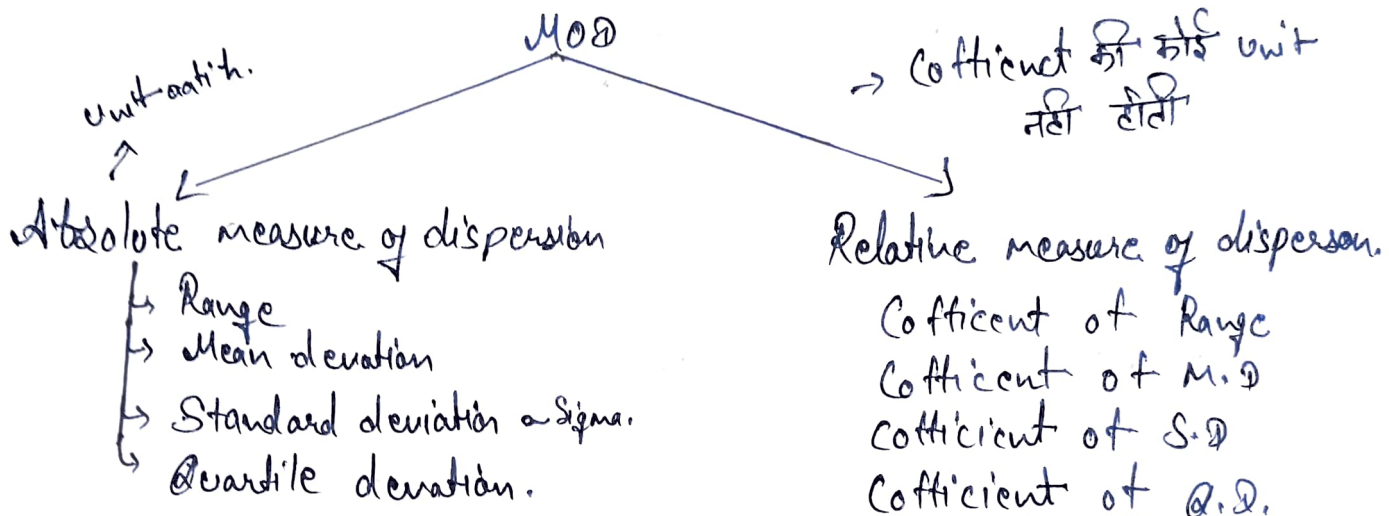 MOD
→ Cofficenct की कोई unit
नही होती
unit aati h.
Absolute measure of dispersion
Range
Mean devation
Standard deviation → Sigma.
Quartile devation.
Relative measure of disperson.
Cofficent of Range
Cofficent of M.D
Cofficient of S.D
Cofficient of Q.D.